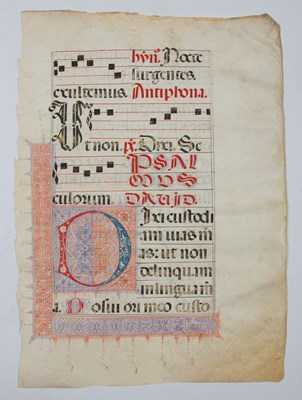 hỹn̄. Nocte
surgentes
exultemus. Antiphona.
Ut non. p̄s. Dixi. Se
PSAL
MUS
culorum. DAVID.
Dixi custodi
am vias m̄
as: ut non
delinquam
in lingua m̄
a. Posui ori meo custo